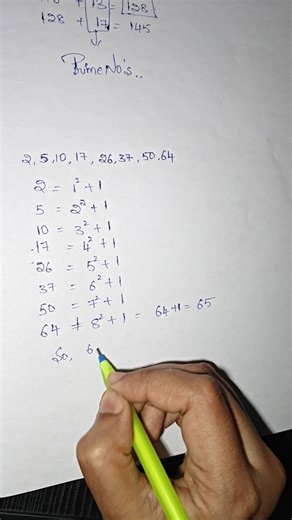 + 13 = 128
128 + 17 = 145
Prime No's..
2, 5, 10, 17, 26, 37, 50, 64
2 = 1² + 1
5 = 2² + 1
10 = 3² + 1
17 = 4² + 1
26 = 5² + 1
37 = 6² + 1
50 = 7² + 1
64 ≠ 8² + 1 = 64+1 = 65
So, 6